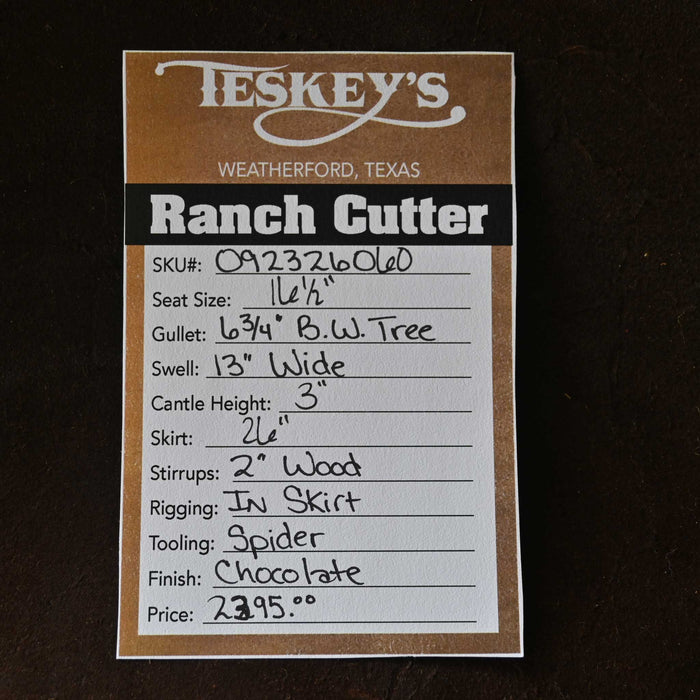 TESKEY'S
WEATHERFORD, TEXAS
Ranch Cutter
SKU#: 0923266060
Seat Size: 16½"
Gullet: 6¾" B.W. Tree
Swell: 13" Wide
Cantle Height: 3"
Skirt: 26"
Stirrups: 2" Wood
Rigging: In Skirt
Tooling: Spider
Finish: Chocolate
Price: 2395.00